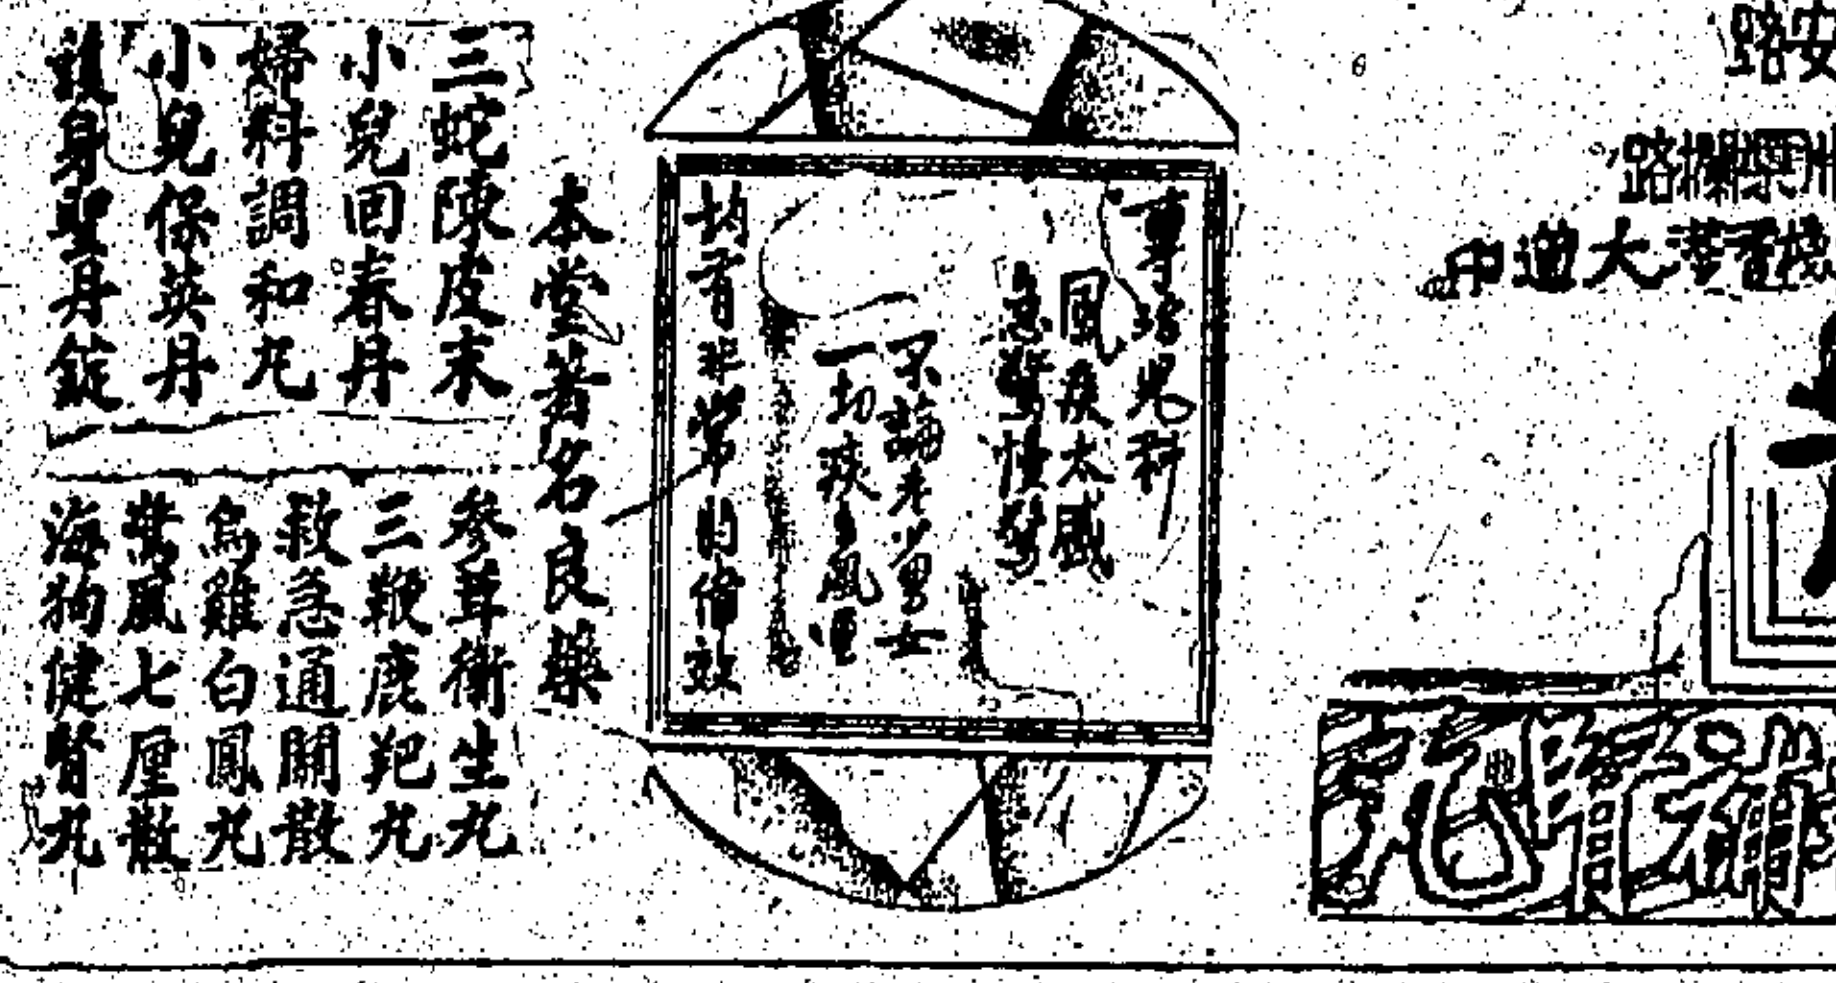 安路
興欄路
香港大道中
補腎丸
專治兒科
風痰太盛
急驚慢驚
不論老少男女
一切痰多風
均有非常的偉效
本堂著名良藥
三蛇陳皮末
小兒回春丹
婦科調和丸
小兒保英丹
護身聖丹錠
參茸衛生丸
三鞭鹿羓丸
救急通關散
烏雞白鳳丸
萬風七厘散
海狗健腎丸